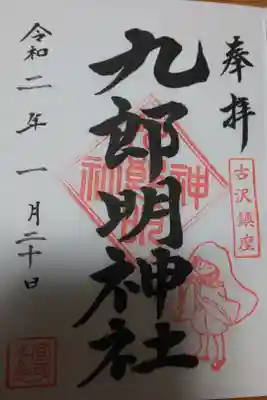 奉拝
古沢鎮座
九郎明神社
令和二年一月二十日